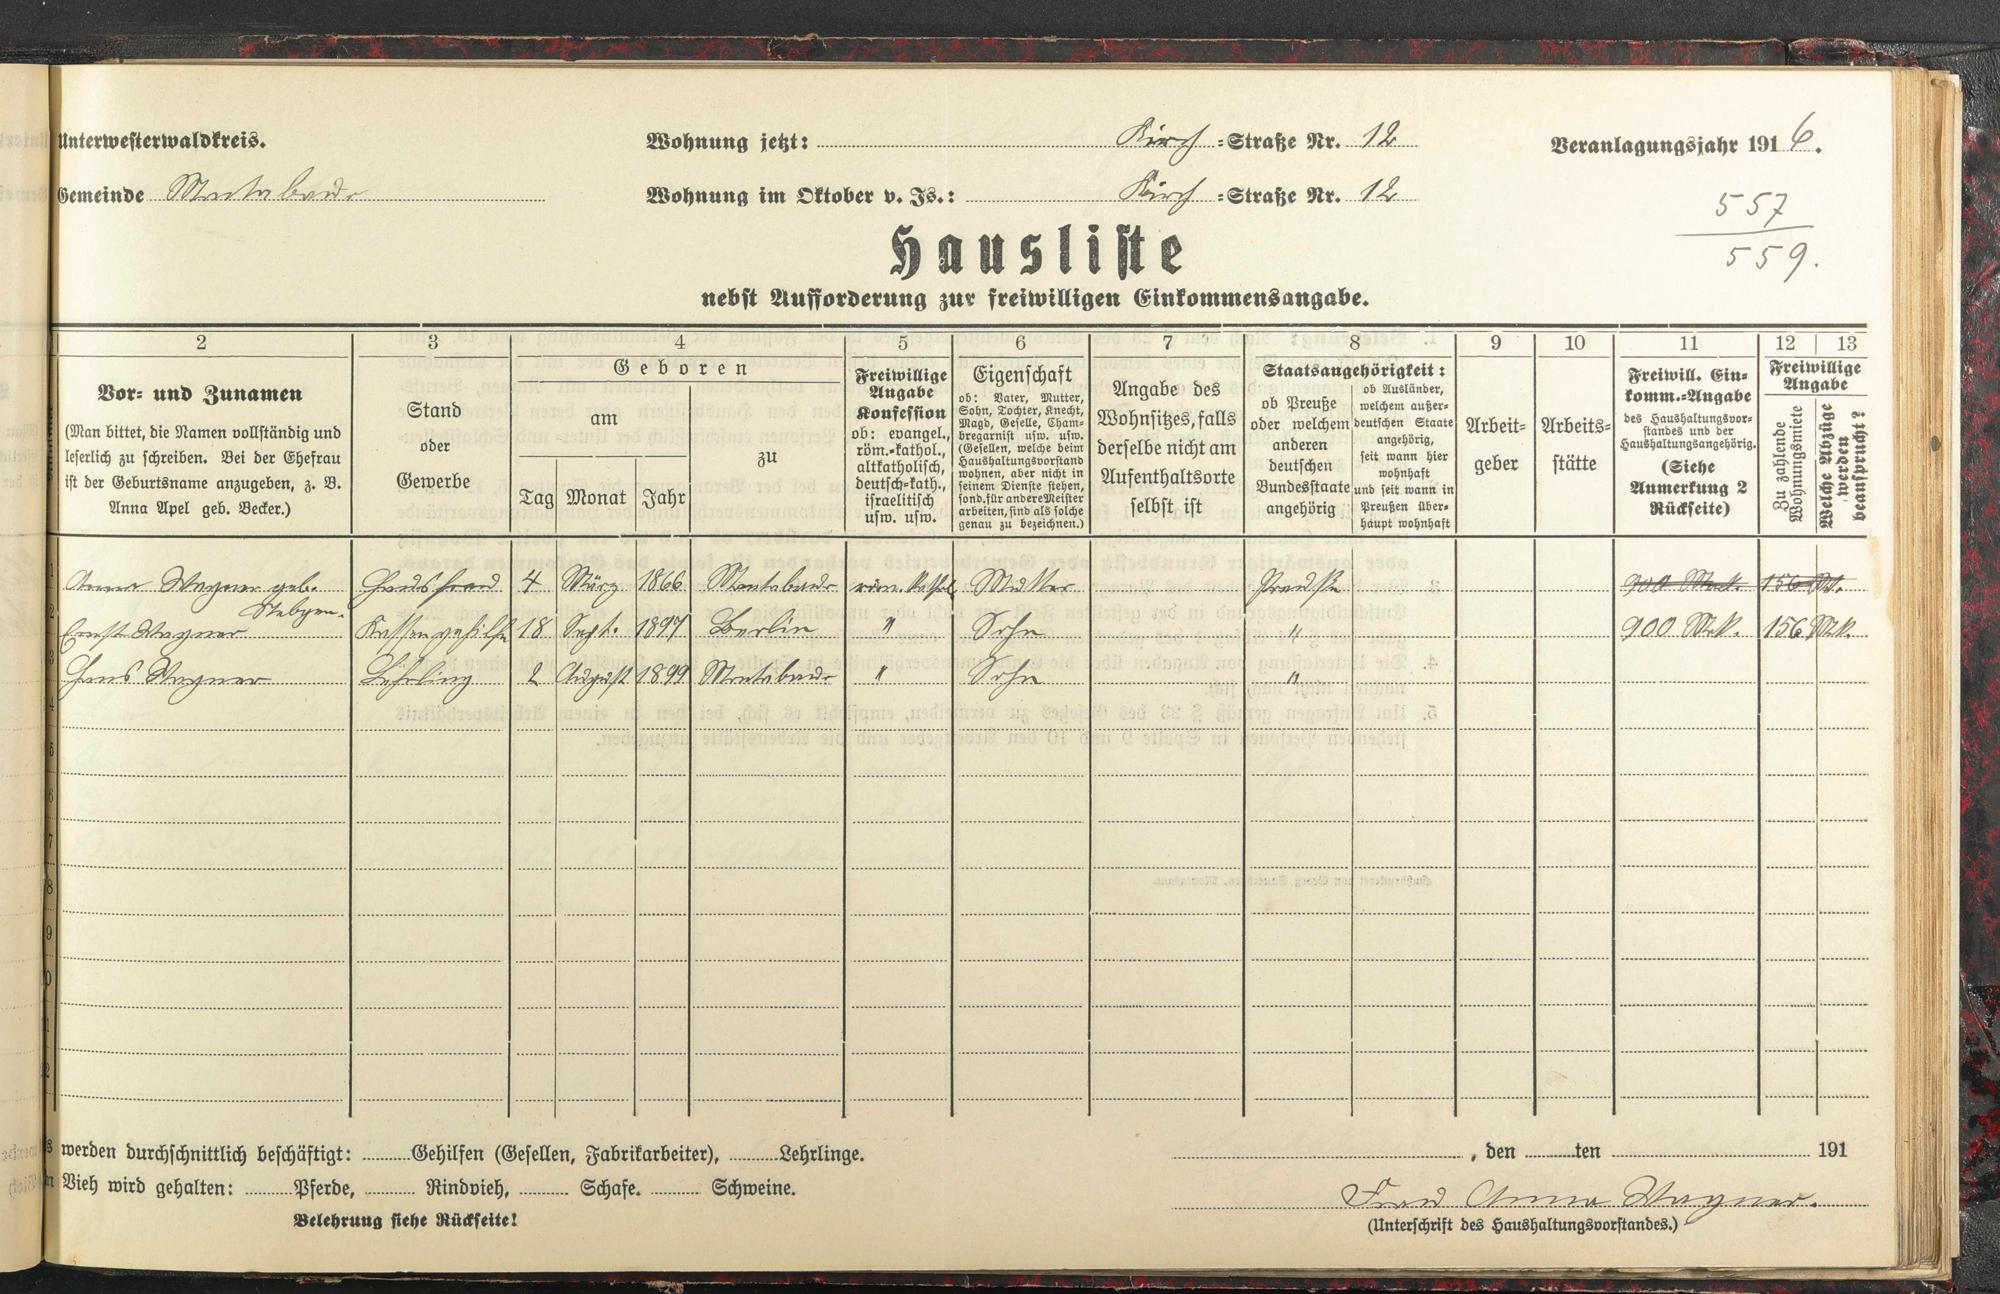 Unterwesterwaldkreis.
Wohnung jetzt: Kirch =Straße Nr. 12
Veranlagungsjahr 1916.
Gemeinde Montabaur
Wohnung im Oktober v. Js.: Kirch =Straße Nr. 12
557
559.
Hausliste
nebst Aufforderung zur freiwilligen Einkommensangabe.
2 3 4 5 6 7 8 9 10 11 12 13
Vor- und Zunamen
(Man bittet, die Namen vollständig und
leserlich zu schreiben. Bei der Ehefrau
ist der Geburtsname anzugeben, z. B.
Anna Apel geb. Becker.)
Stand
oder
Gewerbe
Geboren
am
Tag Monat Jahr
zu
Freiwillige
Angabe
Konfession
ob: evangel.,
röm.-kathol.,
altkatholisch,
deutsch-kath.,
israelitisch
usw. usw.
Eigenschaft
ob: Vater, Mutter,
Sohn, Tochter, Knecht,
Magd, Geselle, Cham-
bregarnist usw. usw.
(Gesellen, welche beim
Haushaltungsvorstand
wohnen, aber nicht in
seinem Dienste stehen,
sond. für andere Meister
arbeiten, sind als solche
genau zu bezeichnen.)
Angabe des
Wohnsitzes, falls
derselbe nicht am
Aufenthaltsorte
selbst ist
Staatsangehörigkeit:
ob Preuße
oder welchem
anderen
deutschen
Bundesstaate
angehörig
ob Ausländer,
welchem außer-
deutschen Staate
angehörig,
seit wann hier
wohnhaft
und seit wann in
Preußen über-
haupt wohnhaft
Arbeit-
geber
Arbeits-
stätte
Freiwill. Ein-
komm.-Angabe
des Haushaltungsvor-
standes und der
Haushaltungsangehörig.
(Siehe
Anmerkung 2
Rückseite)
Freiwillige
Angabe
Zu zahlende
Wohnungsmiete
Welche Abzüge
werden
beansprucht?
1 Anna Wagner geb. Hausfrau 4 März 1866 Montabaur röm. kathol. Mutter Preußin 900 Mk. 156 Mk.
2 Ernst Wagner Kassengehilfe 18 Sept. 1897 Berlin " Sohn " 900 Mk. 156 Mk.
3 Hans Wagner Lehrling 2 August 1899 Montabaur " Sohn "
4
5
6
7
8
9
10
11
12
werden durchschnittlich beschäftigt: Gehilfen (Gesellen, Fabrikarbeiter), Lehrlinge.
, den ten 191
Vieh wird gehalten: Pferde, Rindvieh, Schafe. Schweine.
Frau Anna Wagner.
Belehrung siehe Rückseite!
(Unterschrift des Haushaltungsvorstandes.)